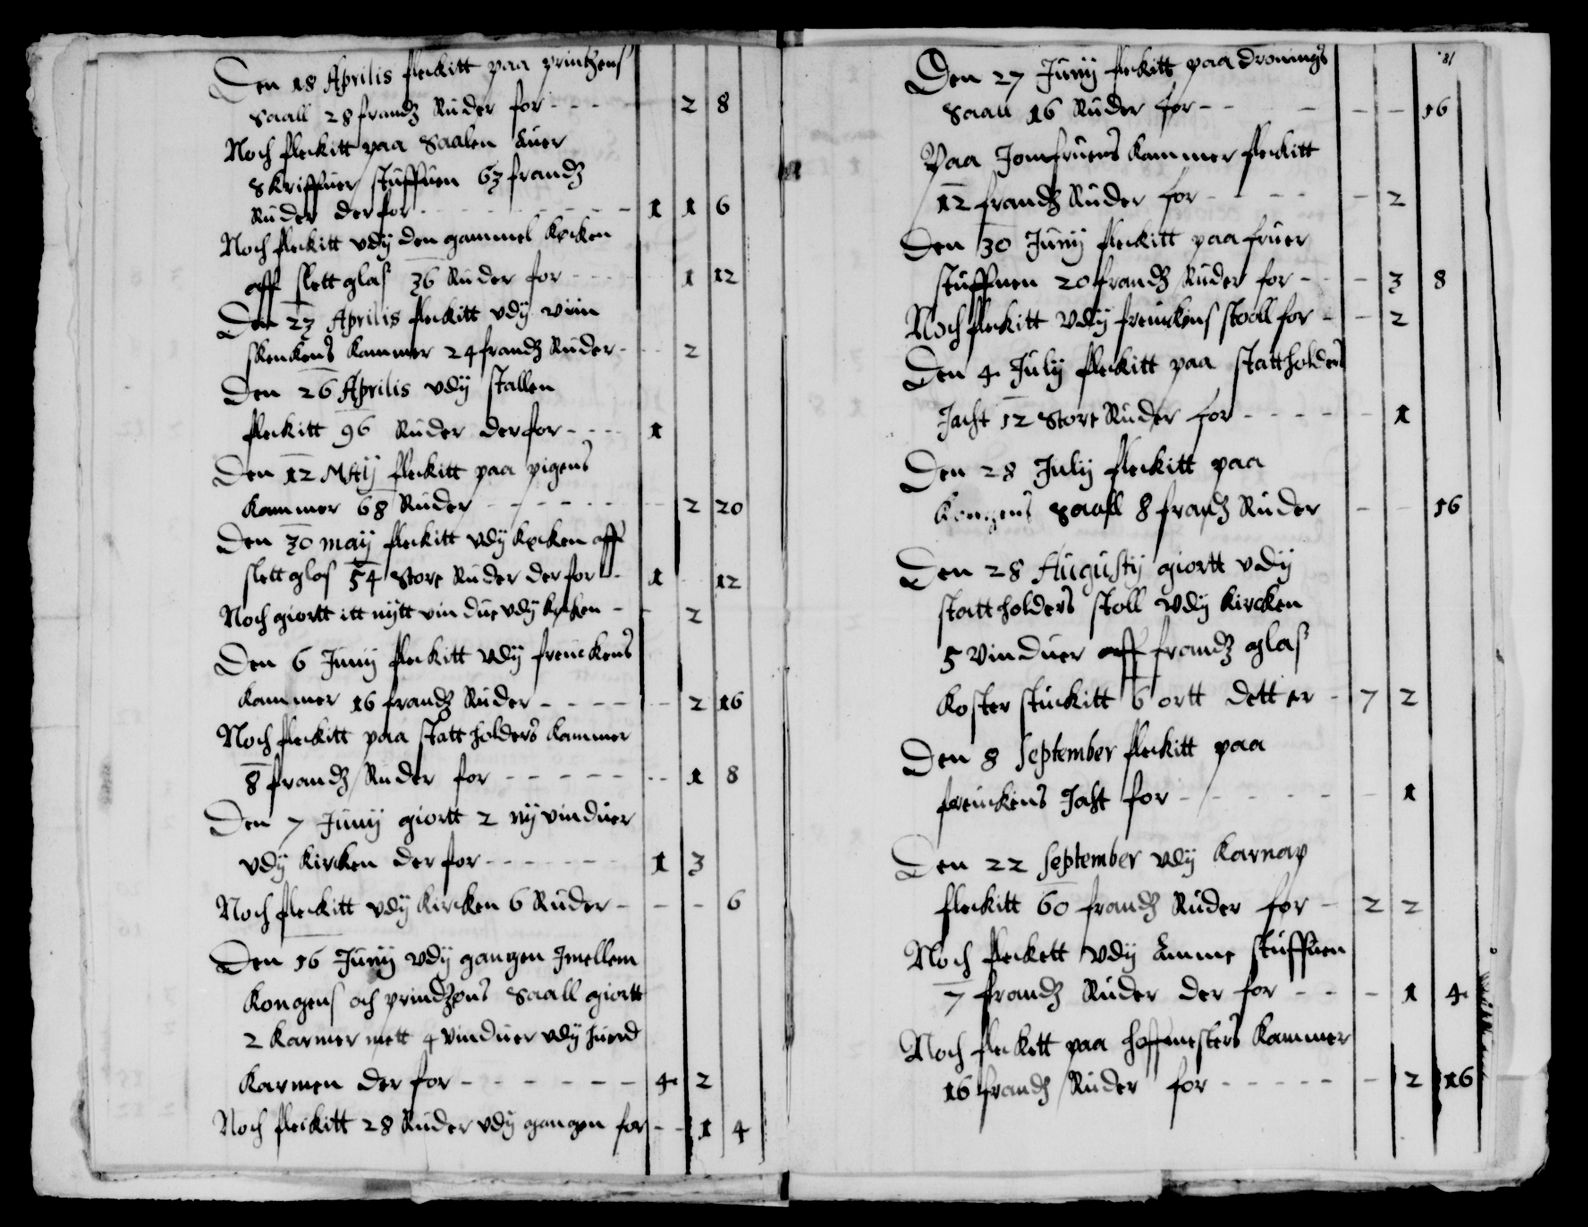 Den 18 Aprilis fleckitt paa printzens
Saall 28 frandz Ruder for - - - - 2 8
Noch fleckitt paa Saalen Øuer
Skriffuer stuffuen 63 frandz
Ruder der for - - - - - - - - 1 1 6
Noch fleckitt vdÿ den gammel Køcken
aff slett glas 36 Ruder for - - - - 1 12
Den 23 Aprilis fleckitt vdÿ viin
skenckens Kammer 24 frandz Ruder - - - 2
Den 26 Aprilis vdÿ stallen
fleckitt 96 Ruder der for - - - - 1
Den 12 Maÿ fleckitt paa pigens
Kammer 68 Ruder - - - - - - - - 2 20
Den 30 maÿ fleckitt vdÿ Køcken aff
slett glas 54 Store Ruder der for - - 1 12
Noch giortt itt nÿtt vin due vdÿ køcken - - 2
Den 6 Junÿ fleckitt vdÿ freuckens
Kammer 16 frandz Ruder - - - - - - 2 16
Noch fleckitt paa statt holders Kammer
8 frandz Ruder for - - - - - - - 1 8
Den 7 Junÿ giortt 2 nÿ vinduer
vdÿ Kircken der for - - - - - - - 1 3
Noch fleckitt vdÿ Kircken 6 Ruder - - - 6
Den 16 Junÿ vdÿ gangen Jmellem
Kongens och prindzens Saall giortt
2 Karmer mett 4 vinduer vdÿ huerd
Karmen der for - - - - - - - 4 2
Noch fleckitt 28 Ruder vdÿ gangen for - - 1 4
81
Den 27 Junÿ fleckitt paa dronings
Saall 16 Ruder for - - - - - 16
Paa Jomfruens Kammer fleckitt
12 frandz Ruder for - - - - - - 2
Den 30 Junÿ fleckitt paa fruer
stuffuen 20 frandz Ruder for - - - 3 8
Noch fleckitt vdÿ freuckens stoall for - - 2
Den 4 Julÿ fleckitt paa stattholders
Jacht 12 Store Ruder for - - - - - 1
Den 28 Julÿ fleckitt paa
Kongens Saall 8 frandz Ruder - - 16
Den 28 Augustÿ giortt vdÿ
statt holders stoll vdÿ Kircken
5 Vinduer aff frandz glas
Koster stuckitt 6 ortt dett er - 7 2
Den 8 September fleckitt paa
freuckens Jacht for - - - - - - - 1
Den 22 September vdÿ Karnap
fleckitt 60 frandz Ruder for - 2 2
Noch fleckett vdÿ Amme stuffuen
7 frandz Ruder der for - - - 1 4
Noch fleckett paa hoffmesters Kammer
16 frandz Ruder for - - - - - - 2 16